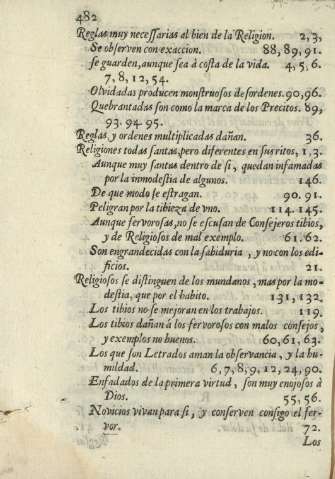 482
Reglas muy neceſſarias al bien de la Religion. 2,3,
Se obſerven con exaccion. 88,89,91.
ſe guarden, aunque ſea à coſta de la vida. 4,5,6.
7,8,12,54.
Olvidadas producen monſtruoſos deſordenes. 90,96.
Quebrantadas ſon como la marca de los Precitos. 89,
93. 94. 95.
Reglas y ordenes multiplicadas dañan. 36.
Religiones todas ſantas, pero diferentes en ſus ritos, 1.3.
Aunque muy ſantas dentro de ſi, quedan infamadas
por la inmodeſtia de algunos. 146.
De que modo ſe eſtragan. 90. 91.
Peligran por la tibieza de vno. 114. 145.
Aunque fervoroſas, no ſe eſcuſan de Conſejeros tibios,
y de Religioſos de mal exemplo. 61. 62.
Son engrandecidas con la ſabiduria, y no con los edi-
ficios. 21.
Religioſos ſe diſtinguen de los mundanos, mas por la mo-
deſtia, que por el habito. 131, 132.
Los tibios no ſe mejoran en los trabajos. 119.
Los tibios dañan à los fervoroſos con malos conſejos,
y exemplos no buenos. 60, 61, 63.
Los que ſon Letrados aman la obſervancia, y la hu-
mildad. 6,7,8,9,12,24,90.
Enfadados de la primera virtud, ſon muy enojoſos à
Dios. 55, 56.
Novicios vivan para ſi, y conſerven conſigo el fer-
vor. 72.
Los